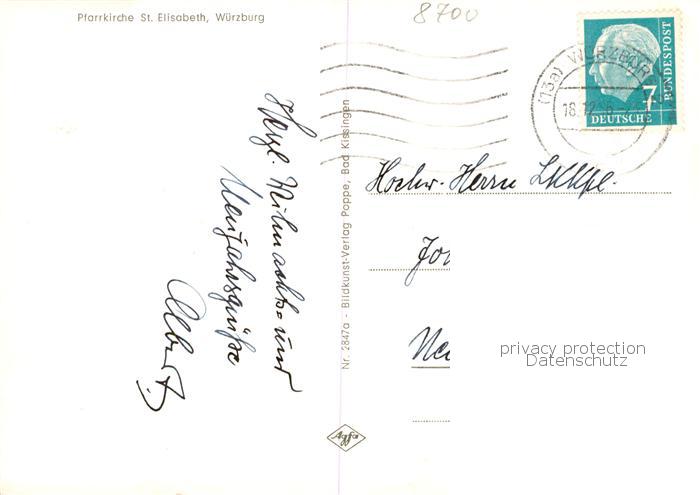 Pfarrkirche St. Elisabeth, Würzburg
8700
DEUTSCHE
BUNDESPOST
7
(13a) WÜRZBURG
18.12.
Herzl. Weihnachts- und
Neujahrsgrüße
Albert.
Nr. 2847a - Bildkunst-Verlag Poppe, Bad Kissingen
Hochw. Herrn
Jo
Ne
privacy protection
Datenschutz
Agfa